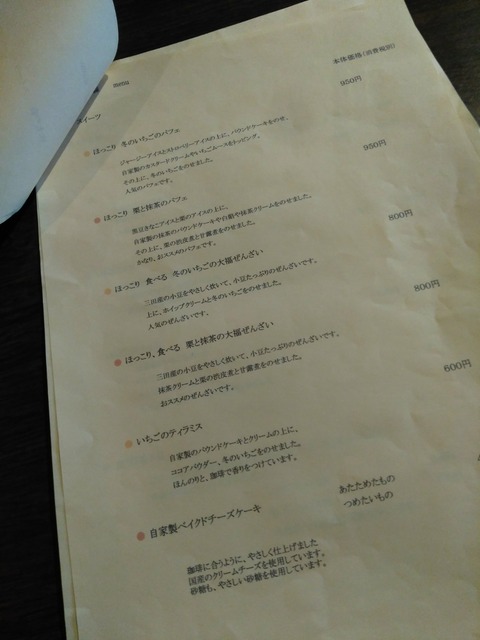 menu
本体価格(消費税別)
スイーツ
ほっこり 冬のいちごのパフェ 950円
ジャージーアイスとストロベリーアイスの上に、パウンドケーキをのせ、
自家製のカスタードクリームやいちごムースをトッピング。
その上に、冬のいちごをのせました。
人気のパフェです。
ほっこり 栗と抹茶のパフェ 950円
黒豆きなこアイスと栗のアイスの上に、
自家製の抹茶のパウンドケーキや白餡や抹茶クリームをのせました。
その上に、栗の渋皮煮と甘露煮をのせました。
かなり、おススメのパフェです。
ほっこり 食べる 冬のいちごの大福ぜんざい 800円
三田産の小豆をやさしく炊いて、小豆たっぷりのぜんざいです。
上に、ホイップクリームと冬のいちごをのせました。
人気のぜんざいです。
ほっこり、食べる 栗と抹茶の大福ぜんざい 800円
三田産の小豆をやさしく炊いて、小豆たっぷりのぜんざいです。
抹茶クリームと栗の渋皮煮と甘露煮をのせました。
おススメのぜんざいです。
いちごのティラミス 600円
自家製のパウンドケーキとクリームの上に、
ココアパウダー、冬のいちごをのせました。
ほんのりと、珈琲で香りをつけています。
自家製ベイクドチーズケーキ
あたためたもの
つめたいもの
珈琲に合うように、やさしく仕上げました
国産のクリームチーズを使用しています。
砂糖も、やさしい砂糖を使用しています。